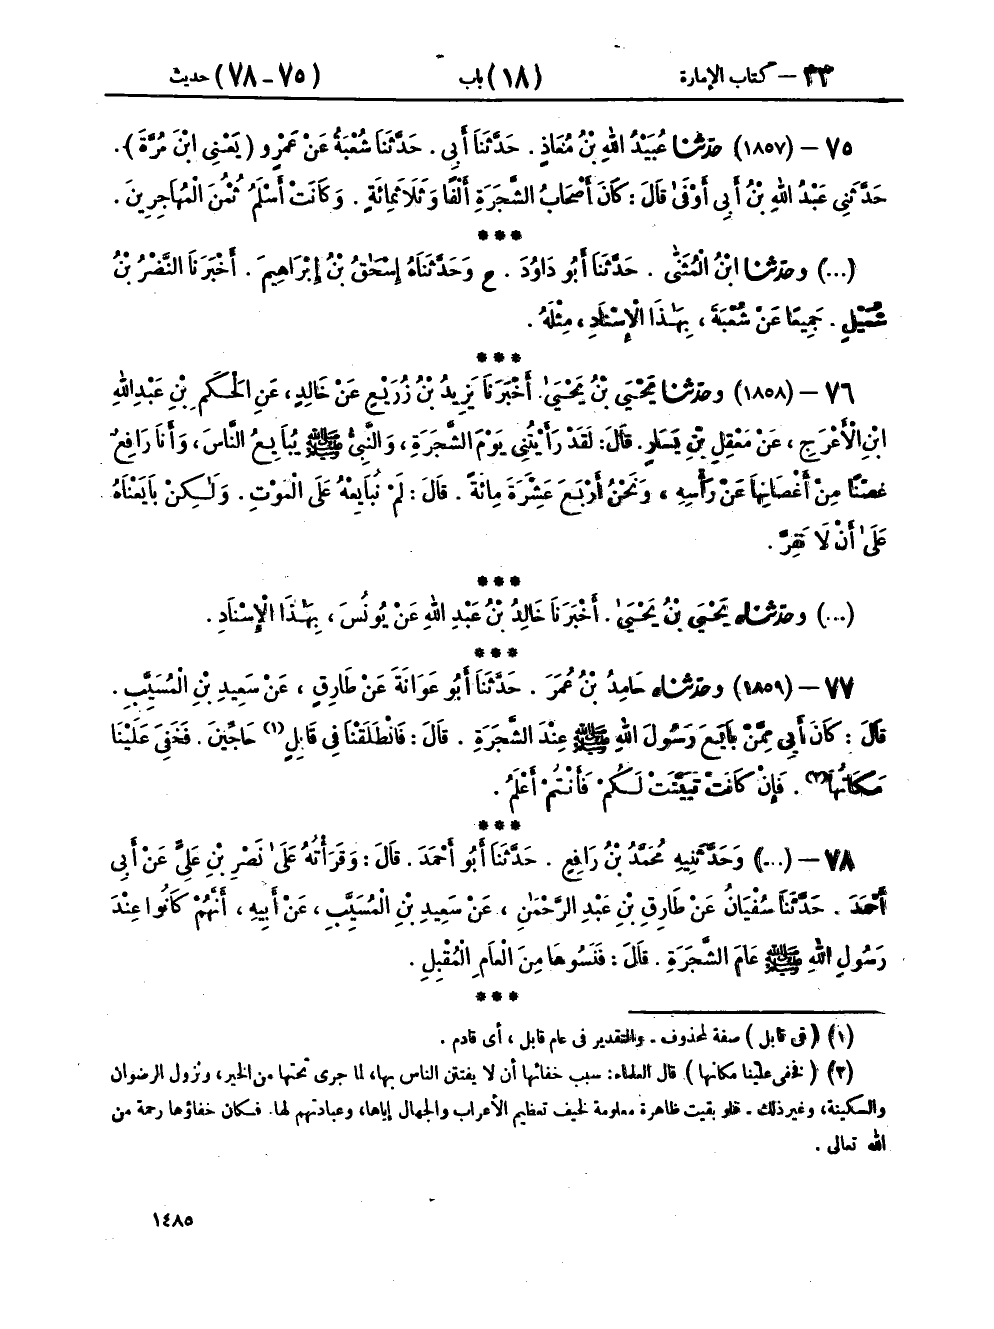 ٣٣ – كتاب الإمارة (١٨) باب (٧٥-٧٨) حديث
٧٥ – (١٨٥٧) حدّثنا عُبَيْدُ اللهِ بْنُ مُعَاذٍ. حَدَّثَنَا أَبِي. حَدَّثَنَا شُعْبَةُ عَنْ عَمْرٍو (يَعْنِي ابْنَ مُرَّةَ).
حَدَّثَنِي عَبْدُ اللهِ بْنُ أَبِي أَوْفَىٰ قَالَ: كَانَ أَصْحَابُ الشَّجَرَةِ أَلْفًا وَثَلَاثَمِائَةٍ. وَكَانَتْ أَسْلَمُ ثُمْنَ الْمُهَاجِرِينَ.
***
(...) وحدّثنا ابْنُ الْمُثَنَّىٰ. حَدَّثَنَا أَبُو دَاوُدَ. ح وَحَدَّثَنَاهُ إِسْحَٰقُ بْنُ إِبْرَاهِيمَ. أَخْبَرَنَا النَّضْرُ بْنُ
شُمَيْلٍ. جَمِيعًا عَنْ شُعْبَةَ، بِهَٰذَا الْإِسْنَادِ، مِثْلَهُ.
***
٧٦ – (١٨٥٨) وحدّثنا يَحْيَىٰ بْنُ يَحْيَىٰ. أَخْبَرَنَا يَزِيدُ بْنُ زُرَيْعٍ عَنْ خَالِدٍ، عَنِ الْحَكَمِ بْنِ عَبْدِاللهِ
ابْنِ الْأَعْرَجِ، عَنْ مَعْقِلِ بْنِ يَسَارٍ. قَالَ: لَقَدْ رَأَيْتُنِي يَوْمَ الشَّجَرَةِ، وَالنَّبِيُّ ﷺ يُبَايِعُ النَّاسَ، وَأَنَا رَافِعٌ
غُصْنًا مِنْ أَغْصَانِهَا عَنْ رَأْسِهِ، وَنَحْنُ أَرْبَعَ عَشْرَةَ مِائَةً. قَالَ: لَمْ نُبَايِعْهُ عَلَى الْمَوْتِ. وَلَٰكِنْ بَايَعْنَاهُ
عَلَىٰ أَنْ لَا نَفِرَّ.
***
(...) وحدّثناه يَحْيَى بْنُ يَحْيَىٰ. أَخْبَرَنَا خَالِدُ بْنُ عَبْدِ اللهِ عَنْ يُونُسَ، بِهَٰذَا الْإِسْنَادِ.
***
٧٧ – (١٨٥٩) وحدّثناه حَامِدُ بْنُ عُمَرَ. حَدَّثَنَا أَبُو عَوَانَةَ عَنْ طَارِقٍ، عَنْ سَعِيدِ بْنِ الْمُسَيَّبِ.
قَالَ: كَانَ أَبِي مِمَّنْ بَايَعَ رَسُولَ اللهِ ﷺ عِنْدَ الشَّجَرَةِ. قَالَ: فَانْطَلَقْنَا فِي قَابِلٍ(١) حَاجِّينَ. فَخَفِيَ عَلَيْنَا
مَكَانُهَا(٢). فَإِنْ كَانَتْ تَبَيَّنَتْ لَكُمْ فَأَنْتُمْ أَعْلَمُ.
***
٧٨ – (...) وَحَدَّثَنِيهِ مُحَمَّدُ بْنُ رَافِعٍ. حَدَّثَنَا أَبُو أَحْمَدَ. قَالَ: وَقَرَأْتُهُ عَلَىٰ نَصْرِ بْنِ عَلِيٍّ عَنْ أَبِي
أَحْمَدَ. حَدَّثَنَا سُفْيَانُ عَنْ طَارِقِ بْنِ عَبْدِ الرَّحْمَٰنِ، عَنْ سَعِيدِ بْنِ الْمُسَيَّبِ، عَنْ أَبِيهِ، أَنَّهُمْ كَانُوا عِنْدَ
رَسُولِ اللهِ ﷺ عَامَ الشَّجَرَةِ. قَالَ: فَنَسُوهَا مِنَ الْعَامِ الْمُقْبِلِ.
***
(١) (في قابل) صفة لمحذوف. والتقدير في عام قابل، أى قادم.
(٢) (فخفى علينا مكانها) قال العلماء: سبب خفائها أن لا يفتتن الناس بها، لما جرى تحتها من الخير، ونزول الرضوان
والسكينة، وغير ذلك. فلو بقيت ظاهرة معلومة لخيف تعظيم الأعراب والجهال إياها، وعبادتهم لها. فكان خفاؤها رحمة من
الله تعالى.
١٤٨٥